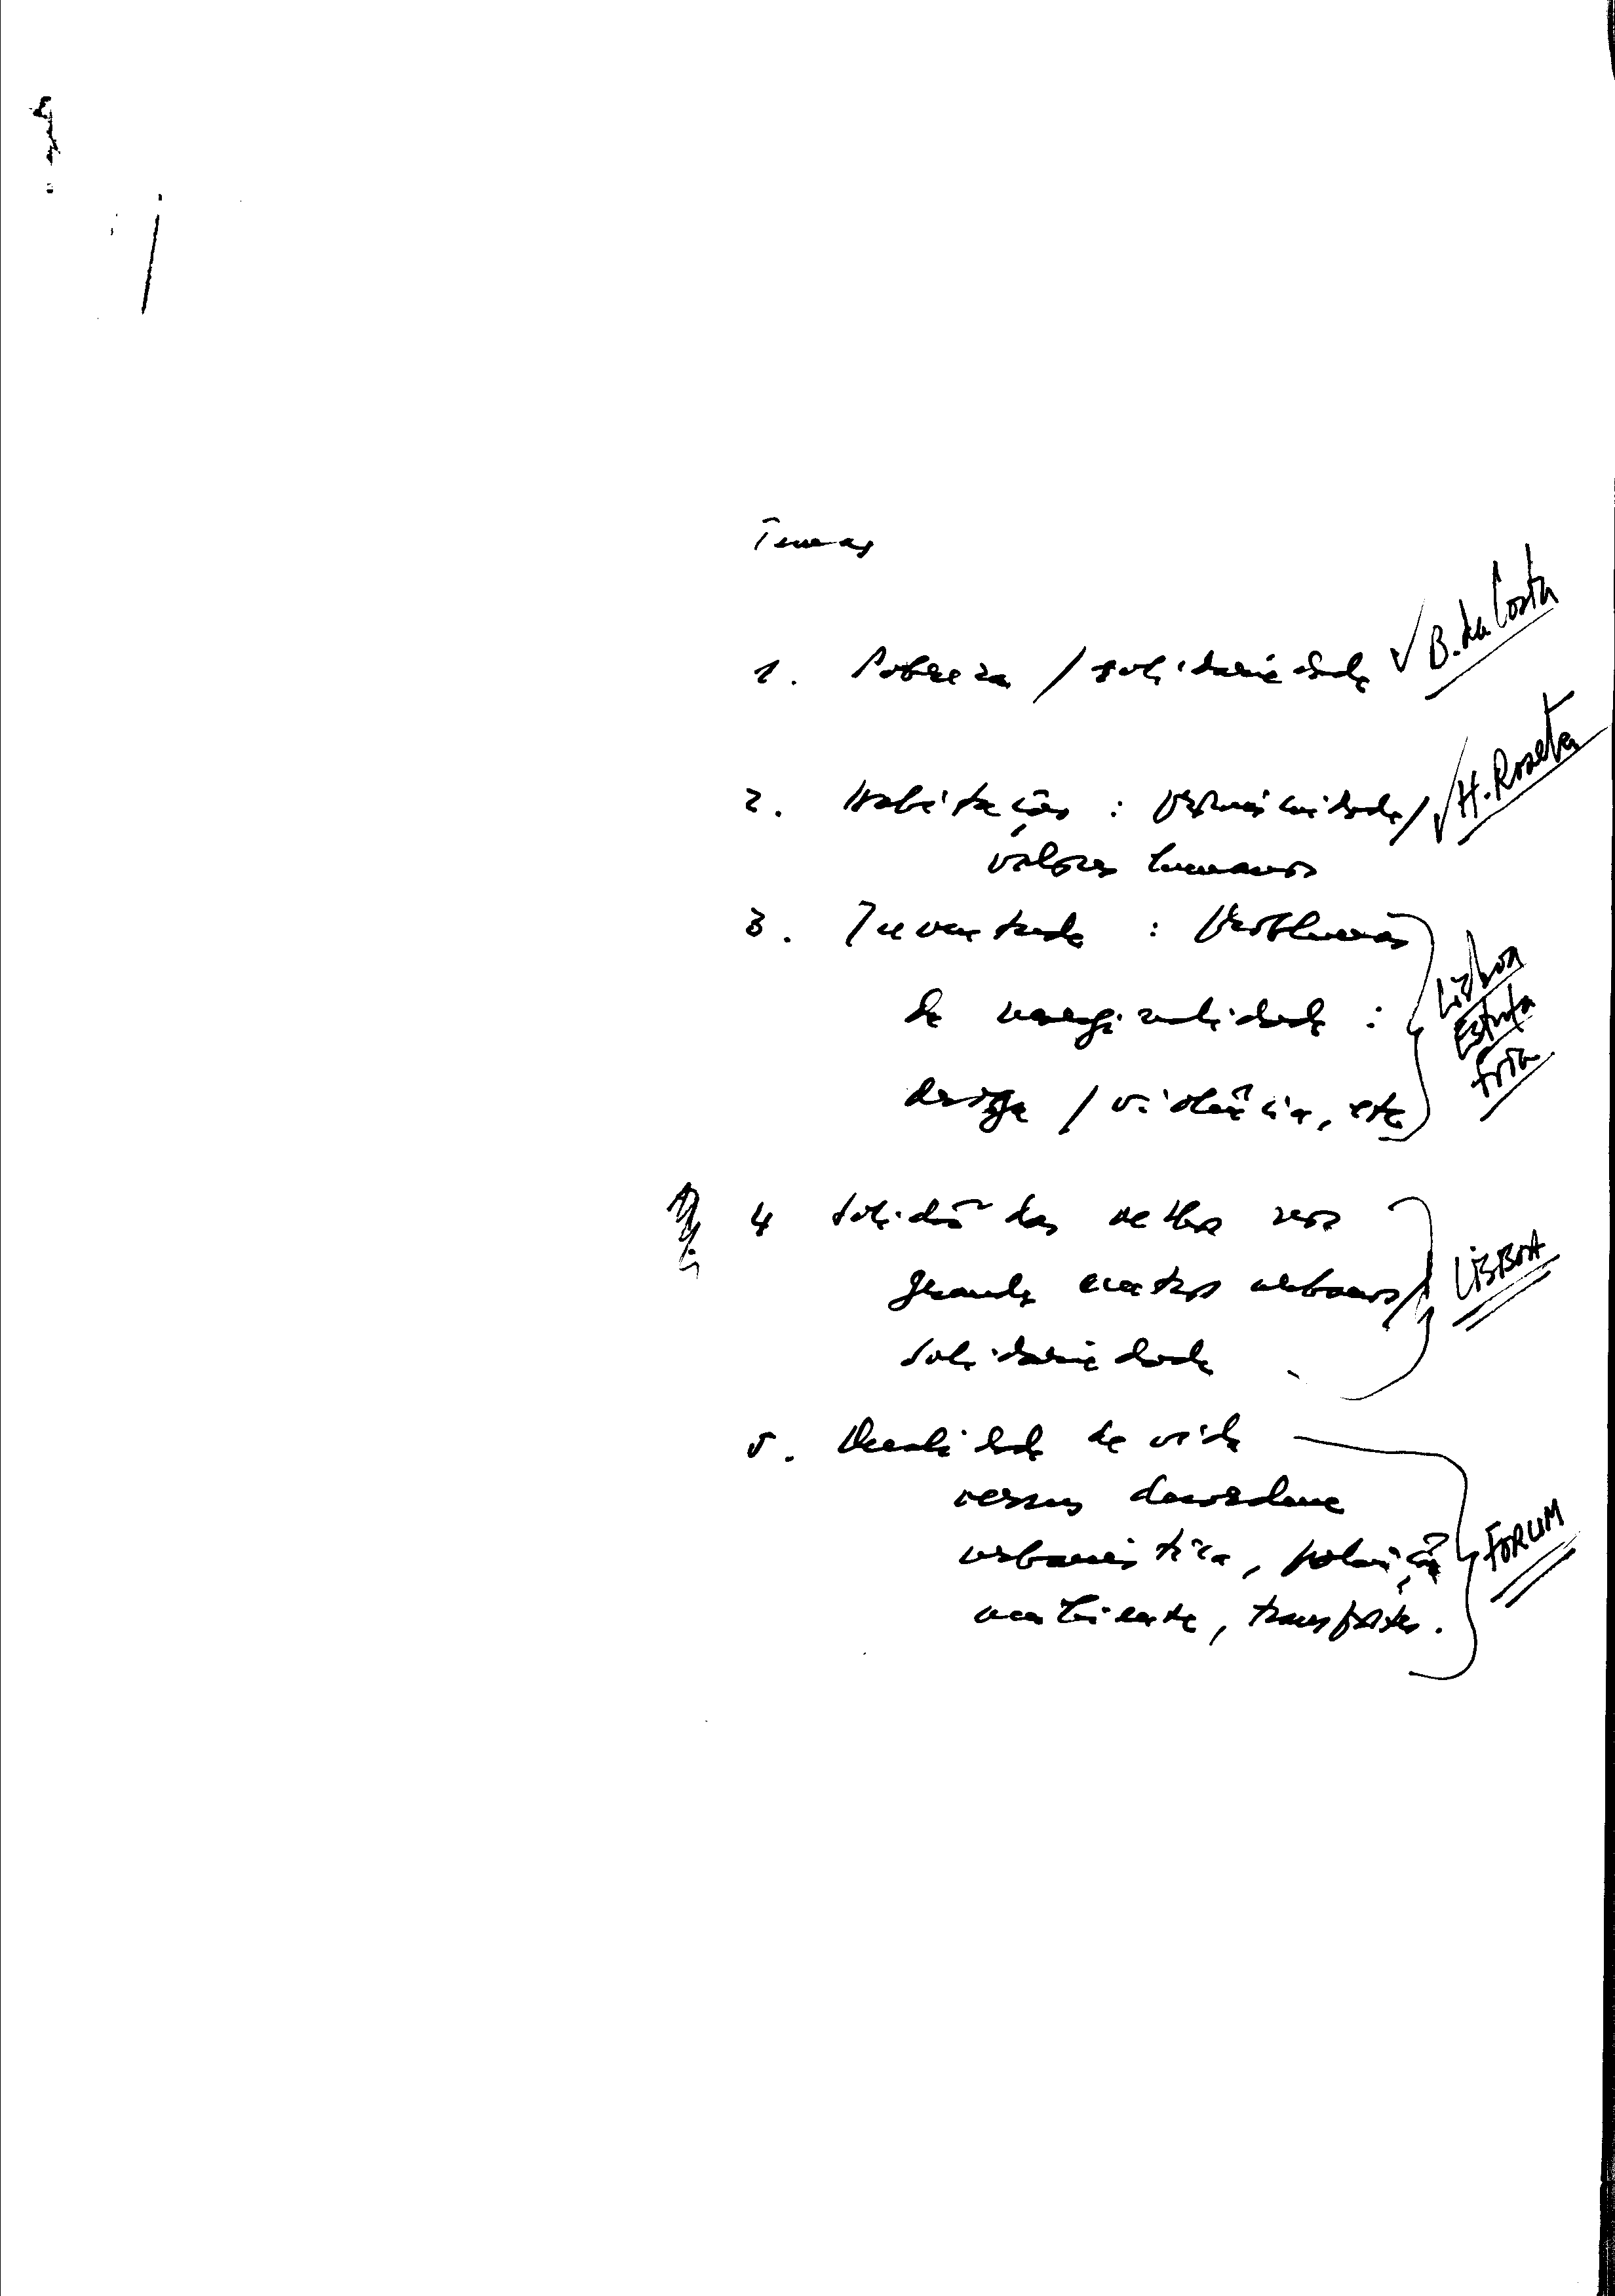 Temas
1. Pobreza / solidariedade ✓ B. da Costa
2. Habitação : / ✓ H. Roseta
valores humanos
3. Juventude : Problemas
de marginalidade :
droga / violência, etc
Lisboa
Estufa
Fria
4 Solidão dos velhos nos
grandes centros urbanos /
solidariedade
LISBOA
5. Qualidade de vida
versus desordem
urbanística, poluição
ambiente, transportes.
FORUM